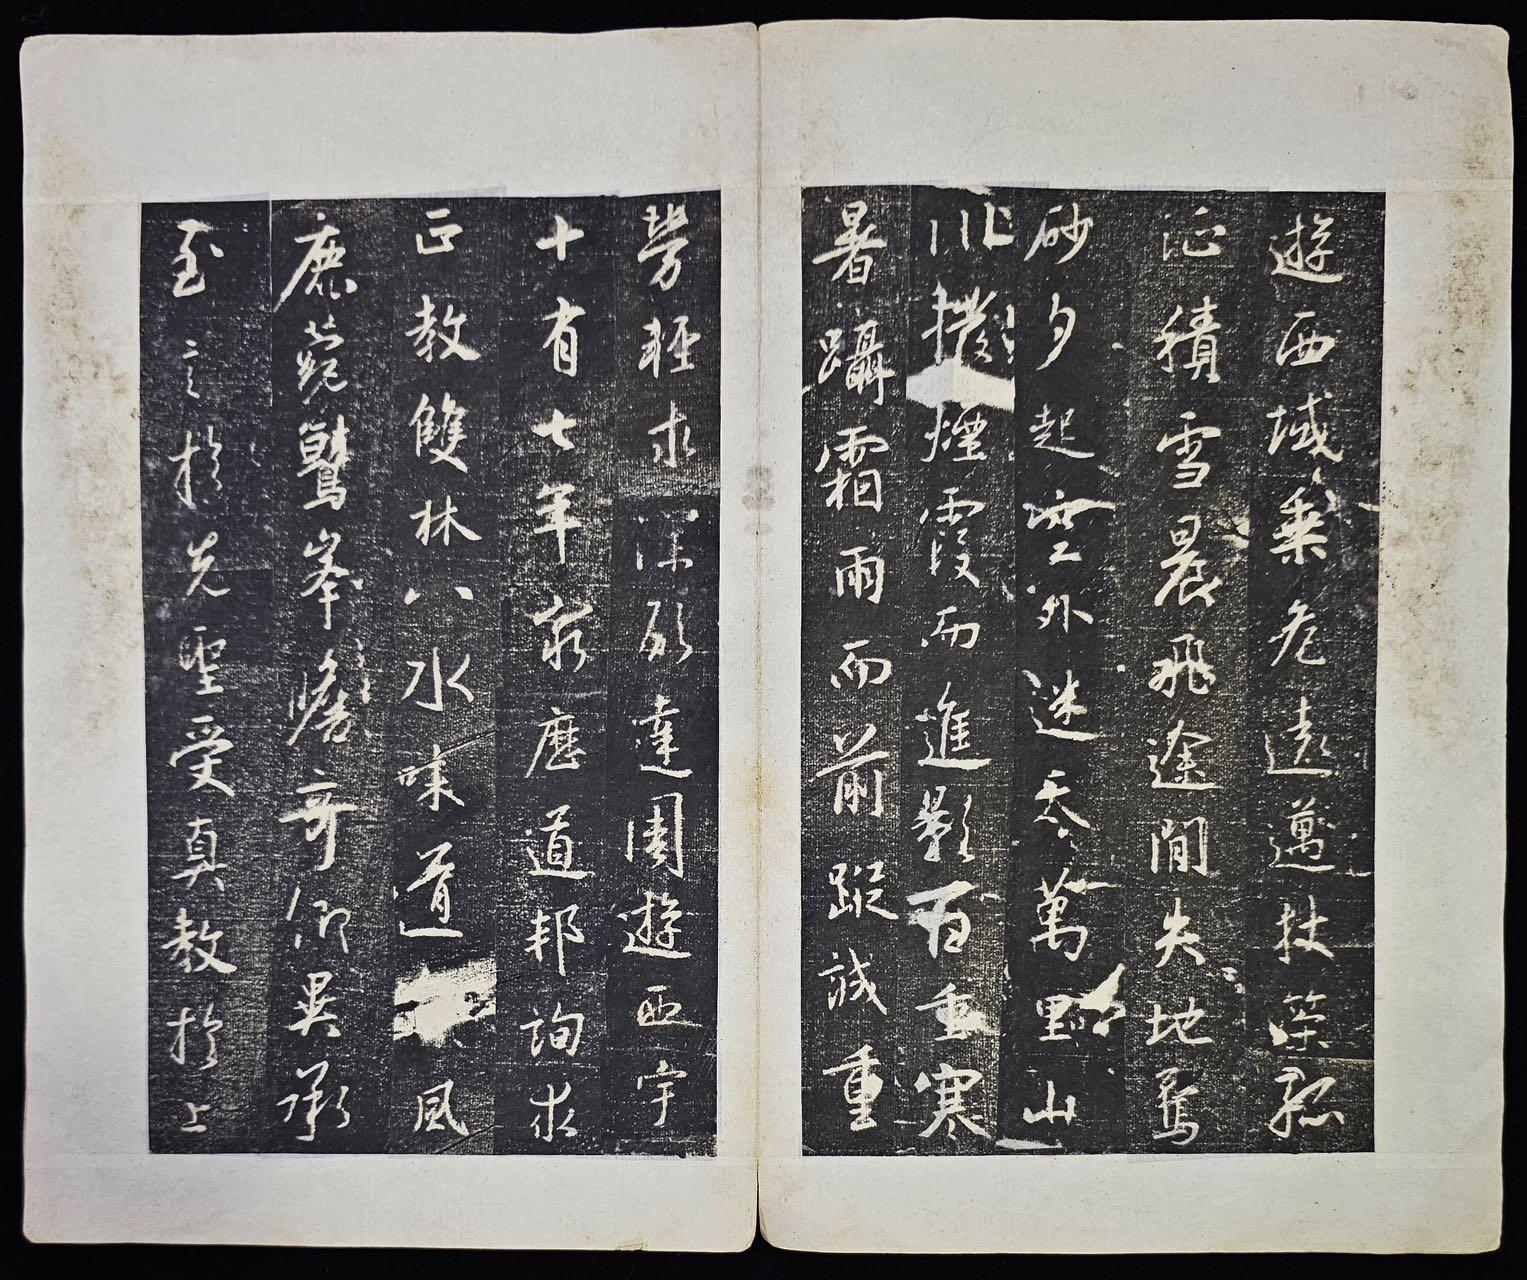 遊西域乘危遠邁杖策孤
征積雪晨飛途間失地驚
砂夕起空外迷天萬里山
川撥煙霞而進影百重寒
暑躡霜雨而前蹤誠重
勞輕求深願達周遊西宇
十有七年窮歷道邦詢求
正教雙林八水味道風
鹿菀鷲峯瞻奇仰異承
至言於先聖受真教於上